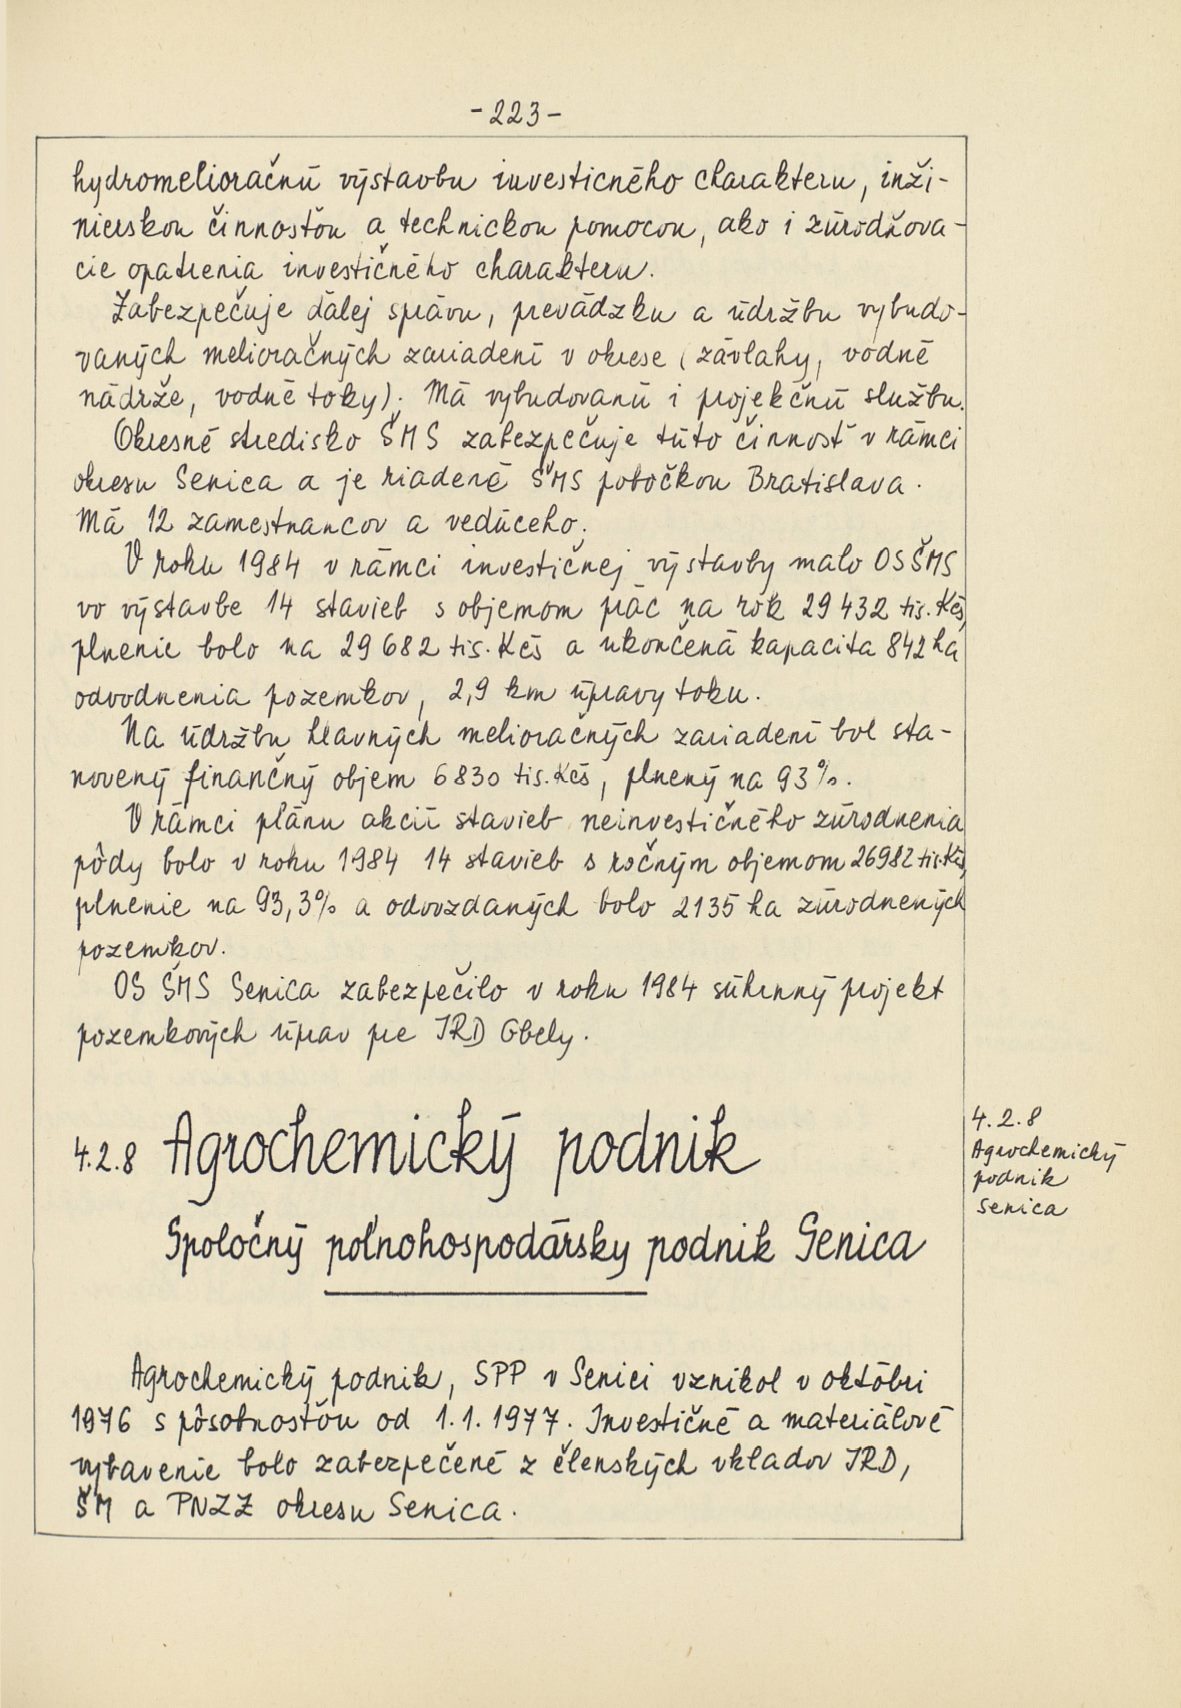 -223-
hydromelioračnú výstavbu investicného charakteru, inži-
nierskou činnosťou a technickou pomocou, ako i zúrodňova-
cie opatrenia investičného charakteru.
Zabezpečuje ďalej správu, prevádzku a údržbu vybudo-
vaných melioračných zariadení v okrese (závlahy, vodné
nádrže, vodné toky). Má vybudovanú i projekčnú službu.
Okresné stredisko ŠMS zabezpečuje túto činnosť v rámci
okresu Senica a je riadené ŠMS pobočkou Bratislava.
Má 12 zamestnancov a vedúceho.
V roku 1984 v rámci investičnej výstavby malo OSŠMS
vo výstavbe 14 stavieb s objemom prác na rok 29 432 tis. Kčs,
plnenie bolo na 29 682 tis. Kčs a ukončená kapacita 842 ha
odvodnenia pozemkov, 2,9 km úpravy toku.
Na údržbu hlavných melioračných zariadení bol sta-
novený finančný objem 6830 tis. Kčs, plnený na 93%.
V rámci plánu akcií stavieb neinvestičného zúrodnenia
pôdy bolo v roku 1984 14 stavieb s ročným objemom 26982 tis. Kčs,
plnenie na 93,3% a odovzdaných bolo 2135 ha zúrodnených
pozemkov.
OS ŠMS Senica zabezpečilo v roku 1984 súhrnný projekt
pozemkových úprav pre JRD Gbely.
4.2.8 Agrochemický podnik
Spoločný poľnohospodársky podnik Senica
4.2.8
Agrochemický
podnik
Senica
Agrochemický podnik, SPP v Senici vznikol v októbri
1976 s pôsobnosťou od 1.1.1977. Investičné a materiálové
vybavenie bolo zabezpečené z členských vkladov JRD,
ŠM a PNZZ okresu Senica.